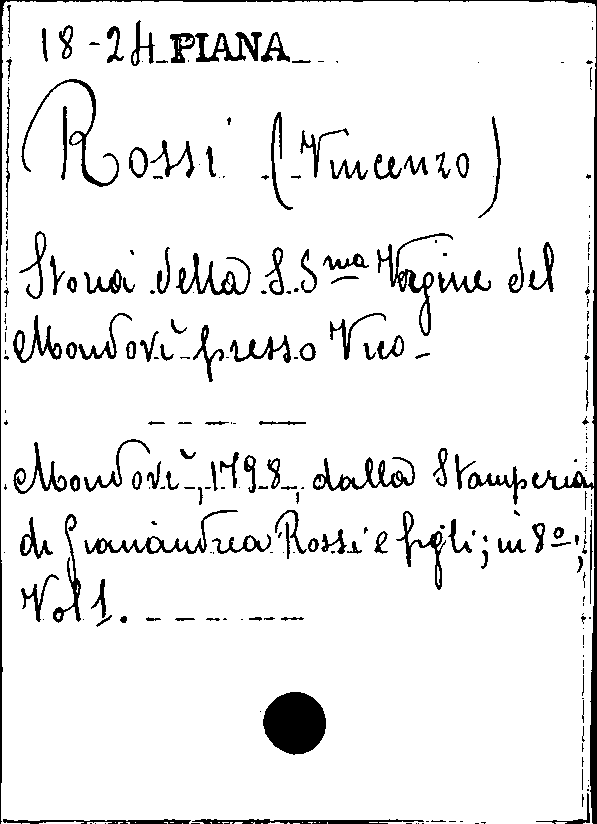 18-24 PIANA
Rossi (Vincenzo)
Storia della S.S.ma Vergine del
Mondovì presso Vico-
Mondovì, 1798, dalla Stamperia
di Gianandrea Rossi e figli; in 8º;
Vol 1.